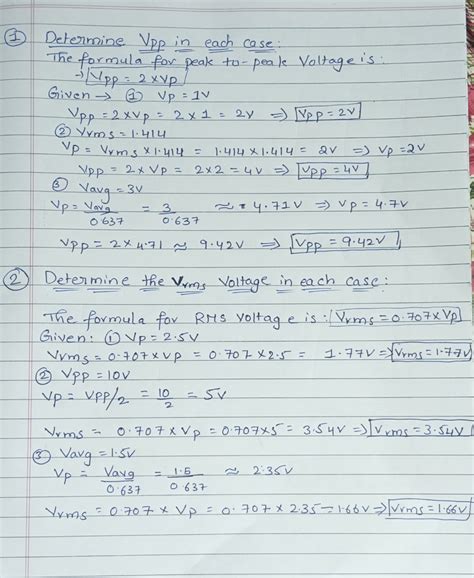 ① Determine Vpp in each case:
The formula for peak to-peak Voltage is:
→ Vpp = 2×Vp
Given → ① Vp = 1V
Vpp = 2×Vp = 2×1 = 2V ⇒ Vpp = 2V
② Vrms = 1.414
Vp = Vrms × 1.414 = 1.414 × 1.414 = 2V ⇒ Vp = 2V
Vpp = 2×Vp = 2×2 = 4V ⇒ Vpp = 4V
③ Vavg = 3V
Vp = Vavg/0.637 = 3/0.637 ≈ 4.71V ⇒ Vp = 4.7V
Vpp = 2×4.71 ≈ 9.42V ⇒ Vpp = 9.42V
② Determine the Vrms Voltage in each case:
The formula for RMS voltage is: Vrms = 0.707×Vp
Given: ① Vp = 2.5V
Vrms = 0.707×Vp = 0.707×2.5 = 1.77V ⇒ Vrms = 1.77V
② Vpp = 10V
Vp = Vpp/2 = 10/2 = 5V
Vrms = 0.707×Vp = 0.707×5 = 3.54V ⇒ Vrms = 3.54V
③ Vavg = 1.5V
Vp = Vavg/0.637 = 1.5/0.637 ≈ 2.35V
Vrms = 0.707 × Vp = 0.707 × 2.35 = 1.66V ⇒ Vrms = 1.66V